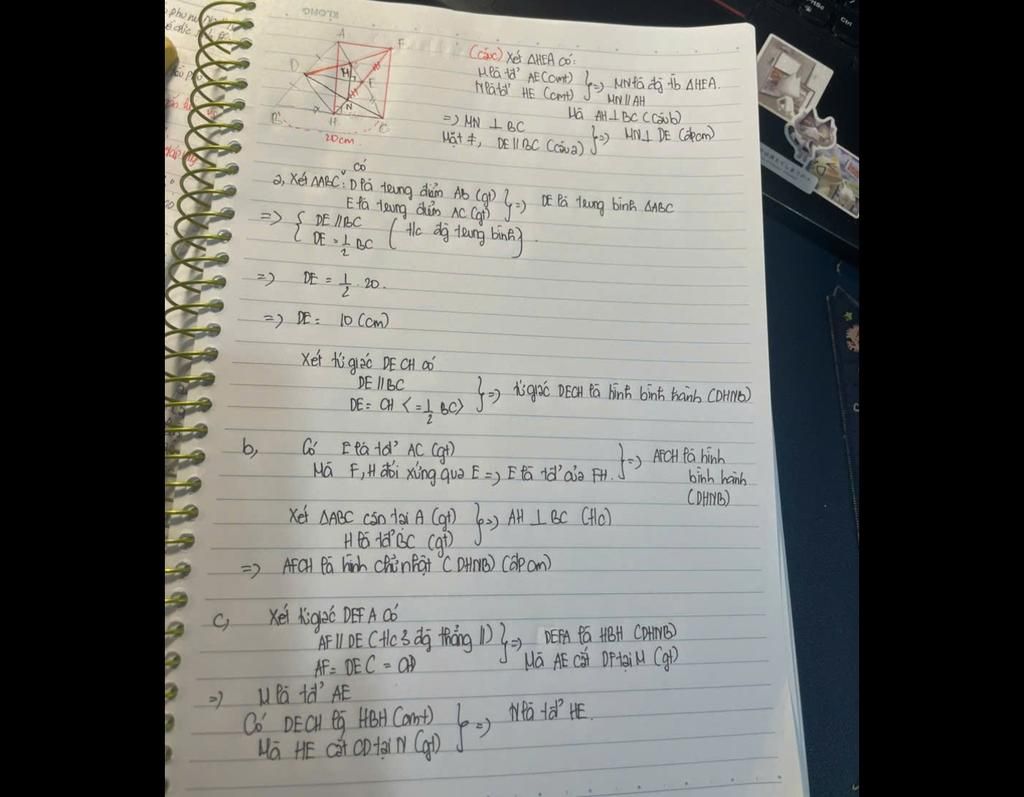 KLONG
A
F
D
M
E
N
B
H
C
20cm
(câu c) Xét ΔHEA có:
M là tđ' AE (cmt) } => MN là đg tb ΔHEA.
N là tđ' HE (cmt) MN // AH
Mà AH ⊥ BC (câu b)
=> MN ⊥ BC
Mặt ≠, DE // BC (câu a) } => MN ⊥ DE (đpcm)
a, Xét ΔABC có: D là trung điểm Ab (gt) } => DE là trung bình ΔABC
E là trung điểm AC (gt)
=> { DE // BC
DE = 1/2 BC ( t/c đg trung bình)
=> DE = 1/2 . 20.
=> DE = 10 (cm)
Xét tứ giác DECH có
DE // BC } => tứ giác DECH là hình bình hành (DHNB)
DE = CH < = 1/2 BC >
b, Có E là tđ' AC (gt) } => AFCH là hình
Mà F, H đối xứng qua E => E là tđ' của FH. bình hành
(DHNB)
Xét ΔABC cân tại A (gt) } => AH ⊥ BC (t/c)
H là tđ' BC (gt)
=> AFCH là hình chữ nhật (DHNB) (đpcm)
c, Xét tứ giác DEFA có
AF // DE (t/c 3 đg thẳng //) } => DEFA là HBH (DHNB)
AF = DE ( = Mà AE cắt DF tại M (gt)
=> M là tđ' AE
Có DECH là HBH (cmt) } => N là tđ' HE.
Mà HE cắt CD tại N (gt)